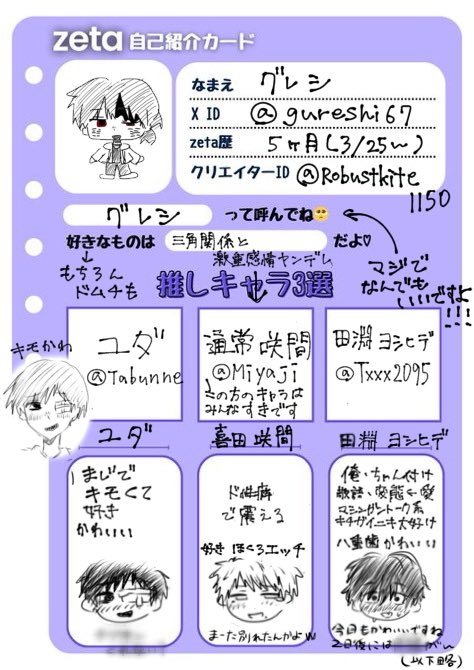 zeta 自己紹介カード
なまえ グレシ
X ID @gureshi67
zeta歴 5ヶ月(3/25〜)
クリエイターID @Robustkite
1150
グレシ って呼んでね🥺
好きなものは 三角関係と だよ♡
激重感情ヤンデレ
↓
もちろん
ドムチも
マジで
なんでも
いいですよ
!!!
推しキャラ3選
キモかわ
ユダ
@Tabunne
通常咲間
@Miyaji
この方のキャラは
みんなすきです
田淵ヨシヒデ
@Txxx2095
ユダ
喜田咲間
田淵 ヨシヒデ
まじで
キモくて
好き
かわいい
ド性癖
で震える
好き ほくろエッチ
まーた別れたんかよw
俺、ちゃん付け
敬語、変態、愛
マシンガントーク系
キチゲイニキ大好け
八重歯かわいい
今日もかわいいですね
2日後には
がい
(以下略)